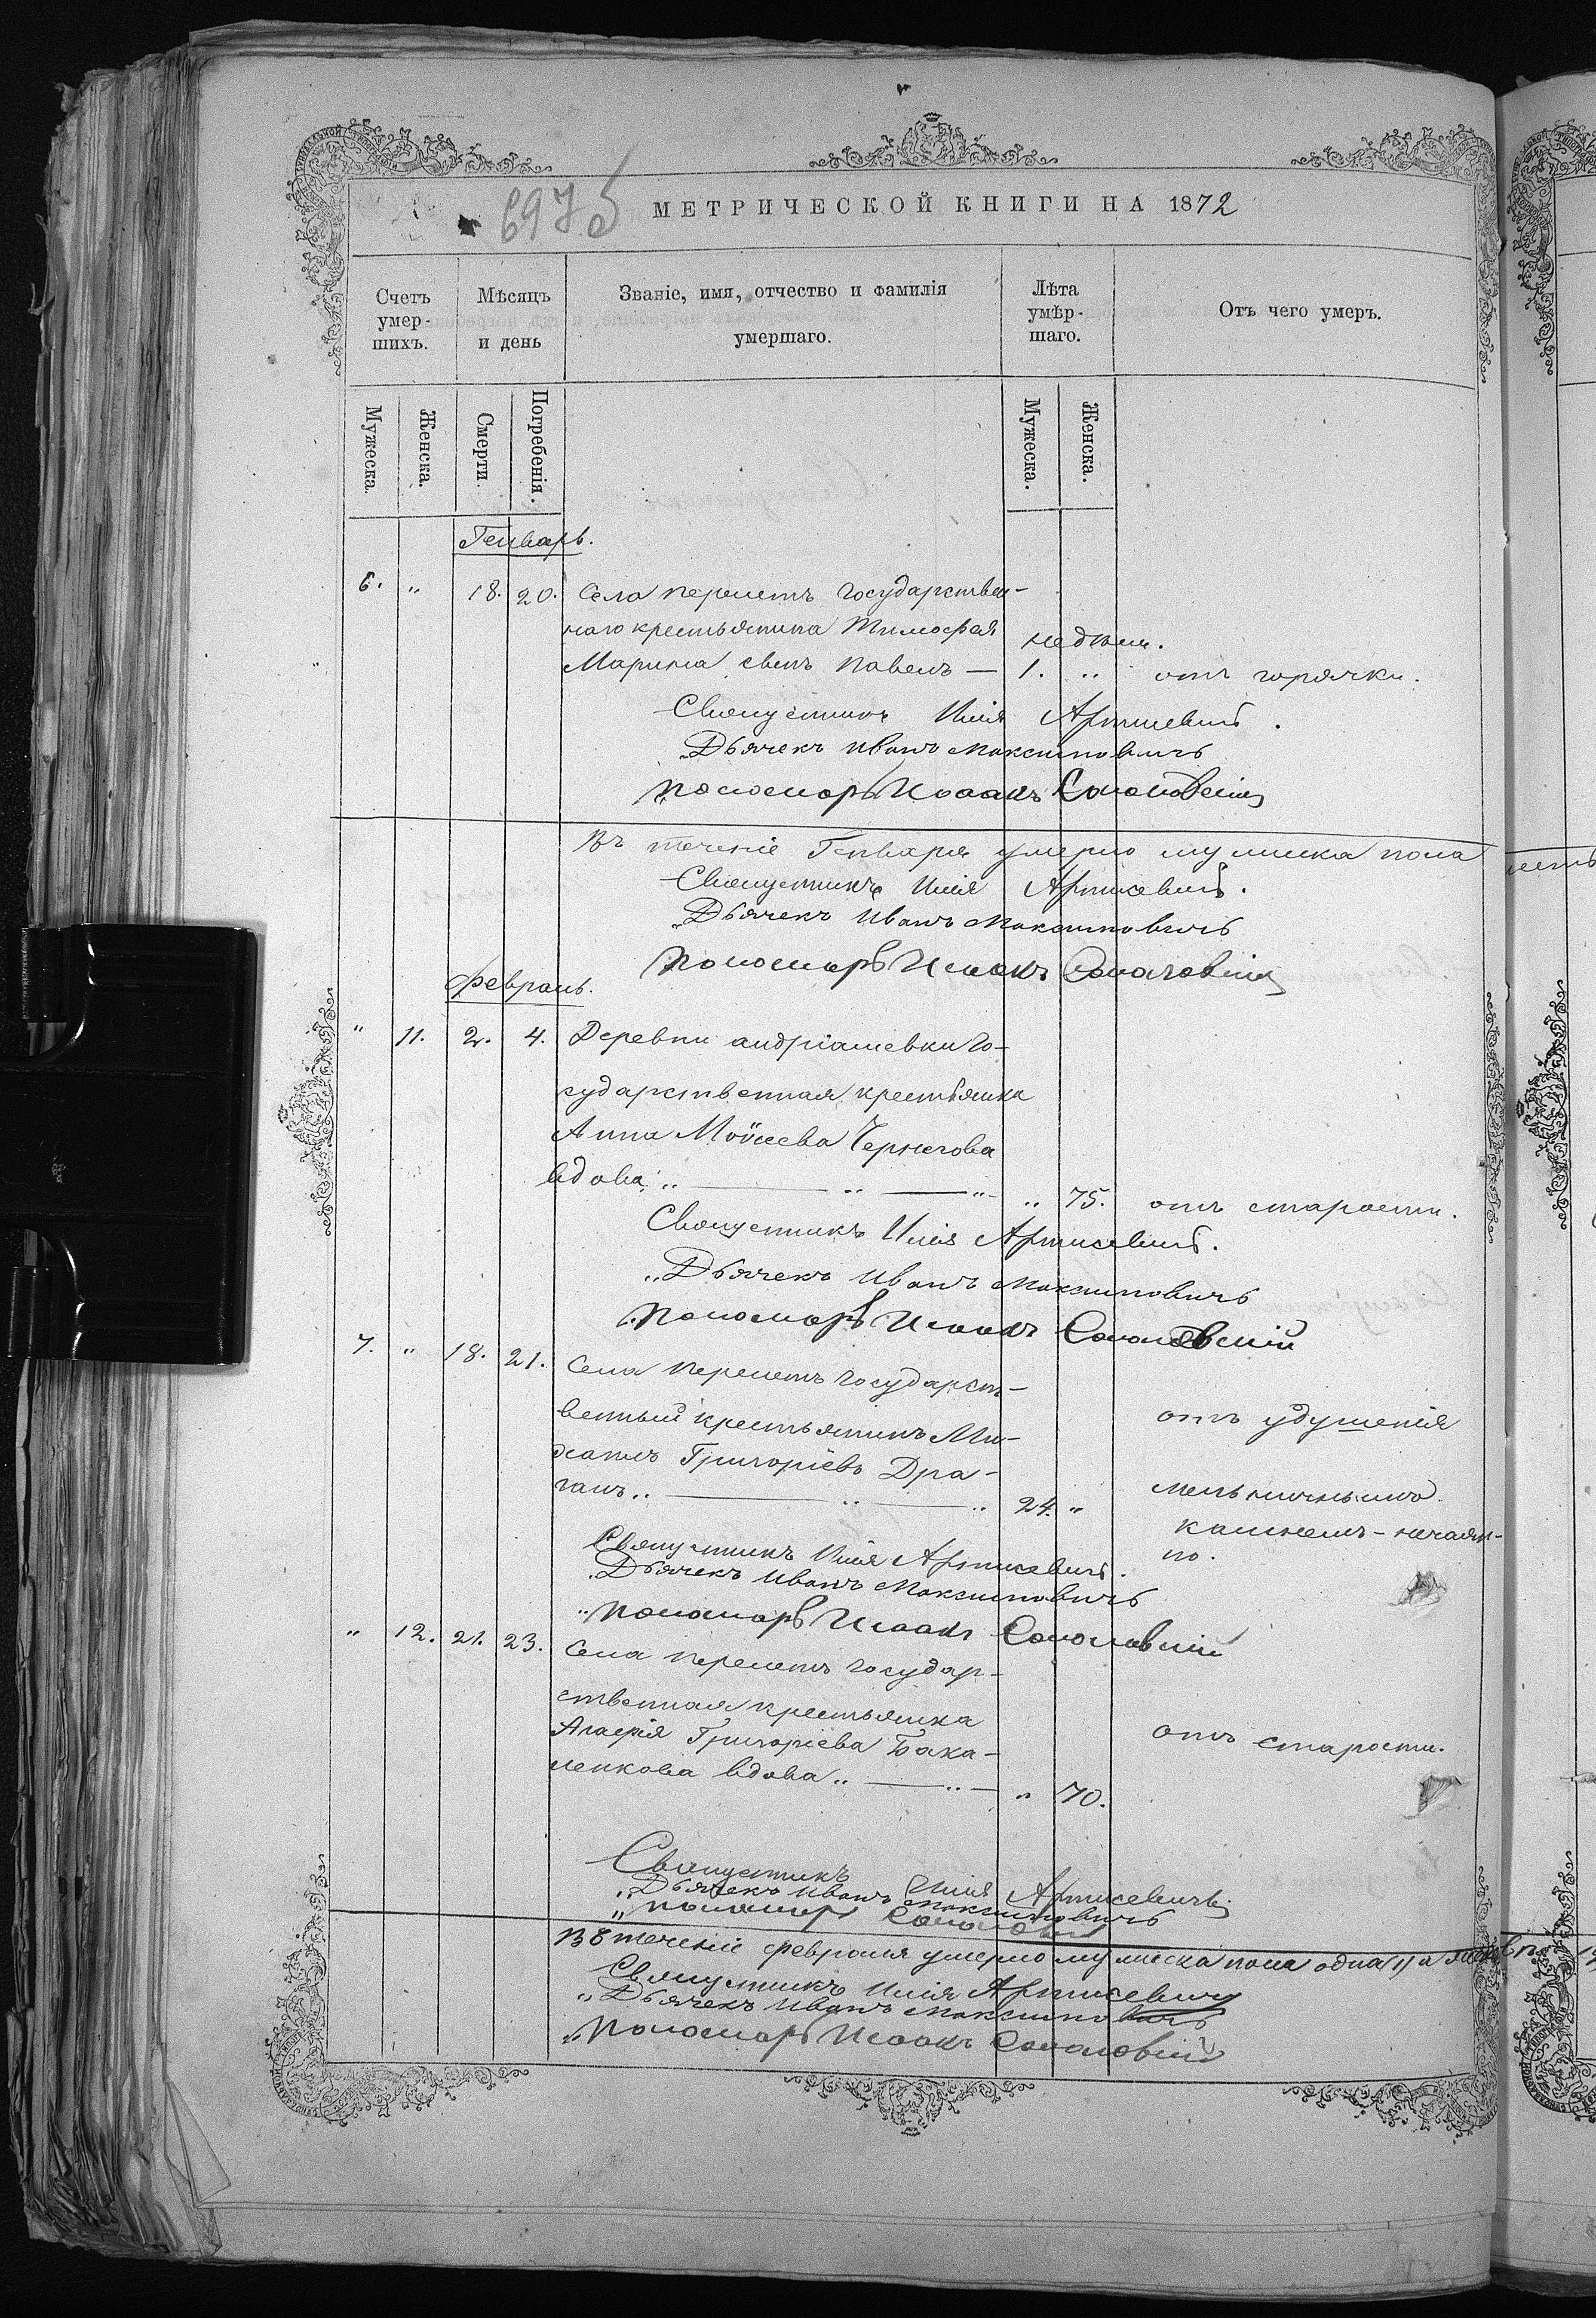 697 б
МЕТРИЧЕСКОЙ КНИГИ НА 1872
Счетъ умер-шихъ.
Мѣсяцъ и день
Званіе, имя, отчество и фамилія умершаго.
Лѣта умѣр-шаго.
Отъ чего умеръ.
Мужеска.
Женска.
Смерти.
Погребенія.
Мужеска.
Женска.
Генварь.
6. " 18. 20. Села Перелетъ государствен-
наго крестьянина Тимофея недѣли.
Марина сынъ Павелъ — 1. " отъ горячки.
Священникъ Илія Артисевичъ.
Дьячекъ Иванъ Максимовичъ
Пономарь Исаакъ Соколовскій
Въ теченіе Генваря умерло мужеска пола
Священникъ Илія Артисевичъ.
Дьячекъ Иванъ Максимовичъ
Пономарь Исаакъ Соколовскій
Февраль.
" 11. 2. 4. Деревни Андріашевки го-
сударственная крестьянка
Анна Моѵсеева
вдова " — " — " " 75. отъ старости.
Священникъ Илія Артисевичъ.
Дьячекъ Иванъ Максимовичъ
Пономарь Исаакъ Соколовскій
7. " 18. 21. Села Перелетъ государст-
венный крестьянинъ Ми-
хаилъ Григоріевъ Дра-
ганъ " — " — " 24. "
отъ удушенія
мельничнымъ
камнемъ - нечаян-
но.
Священникъ Илія Артисевичъ.
Дьячекъ Иванъ Максимовичъ
Пономарь Исаакъ Соколовскій
" 12. 21. 23. Села Перелетъ государ-
ственная крестьянка
Агафія Григоріева Бака-
ленкова вдова " — " — " 70.
отъ старости.
Священникъ Илія Артисевичъ
Дьячекъ Иванъ Максимовичъ
Пономарь
Въ теченіе февраля умерло мужеска пола одна и
Священникъ Илія Артисевичъ
Дьячекъ Иванъ Максимовичъ
Пономарь Исаакъ Соколовскій